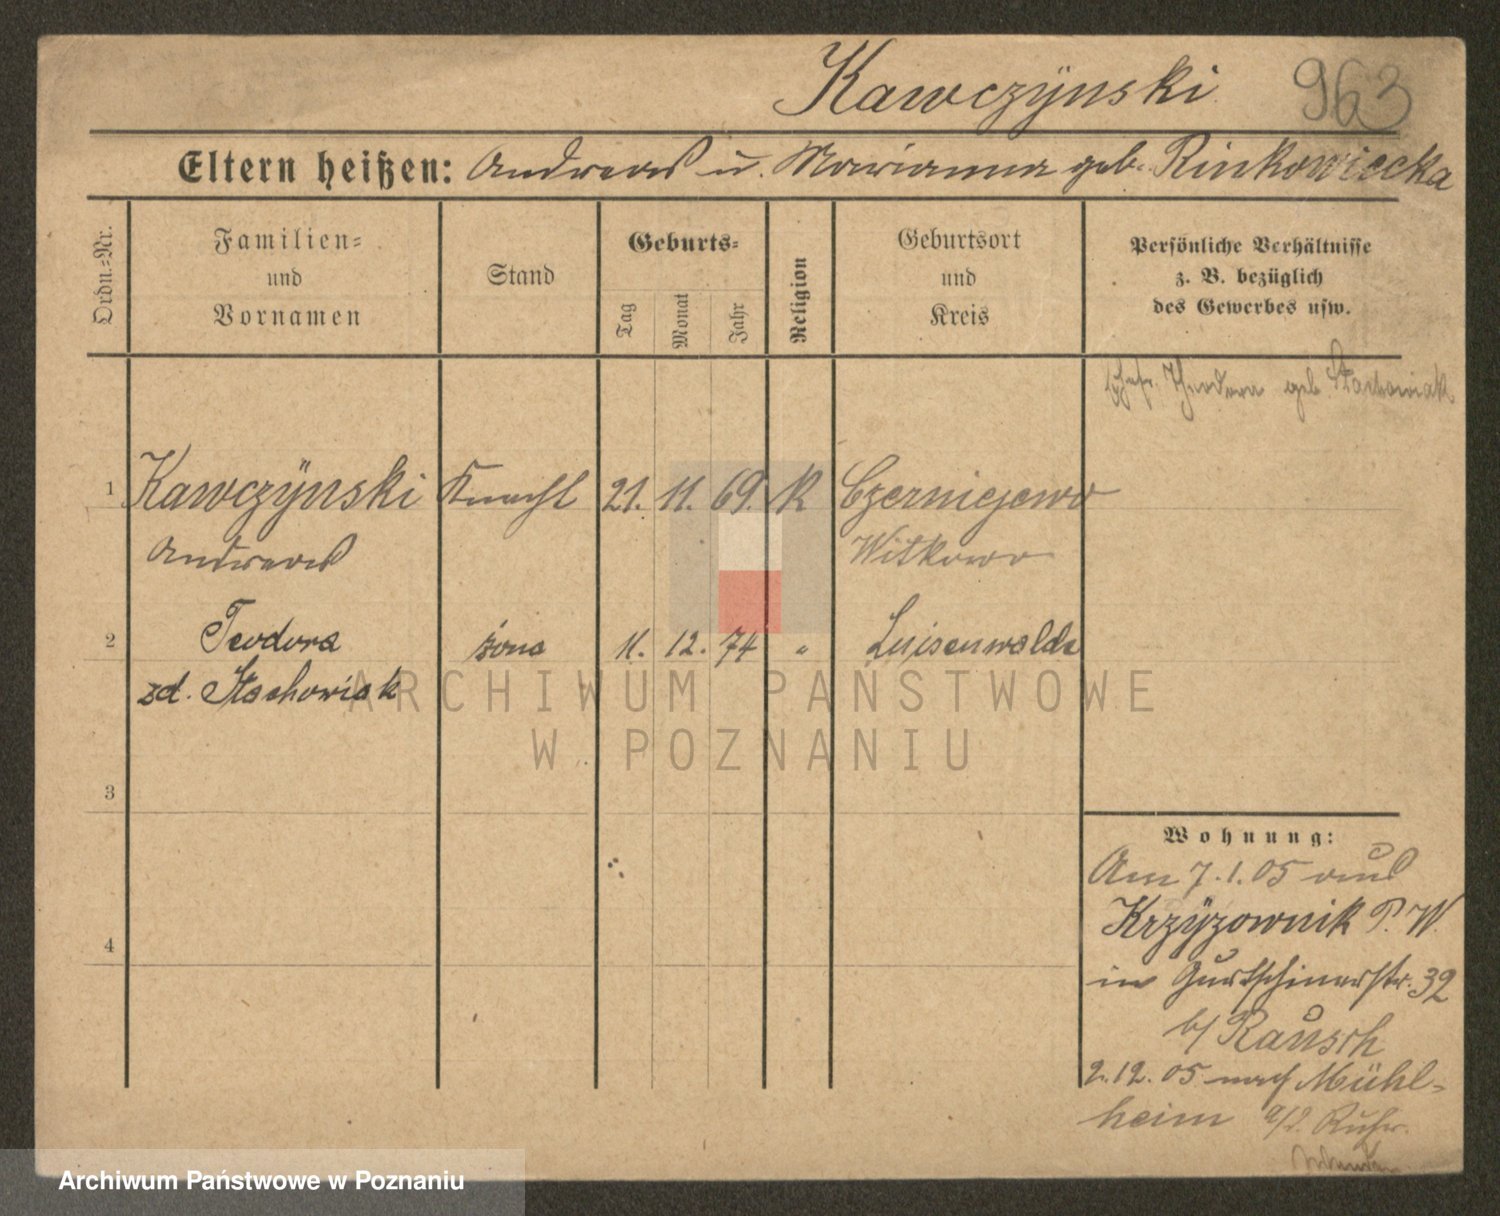 Kawczÿnski 963
Eltern heißen: Andreas u. Marianna geb. Rinkowiecka
Ordn.-Nr.
Familien-
und
Vornamen
Stand
Geburts-
Tag
Monat
Jahr
Religion
Geburtsort
und
Kreis
Persönliche Verhältnisse
z. B. bezüglich
des Gewerbes usw.
Ehefr. Theodora geb. Stachowiak
1 Kawczÿnski Knecht 21. 11. 69. K Czerniejewo
Andreas Witkowo
2 Teodora żona 11. 12. 74 " Luisenwalde
zd. Stachowiak
ARCHIWUM PAŃSTWOWE
W POZNANIU
3
4
Wohnung:
Am 7.1.05 aus
Krzÿzownik P. W.
in Gurtschinerstr. 32
b/ Rausch
2.12.05 nach Mühl-
heim a/d. Ruhr.
Archiwum Państwowe w Poznaniu